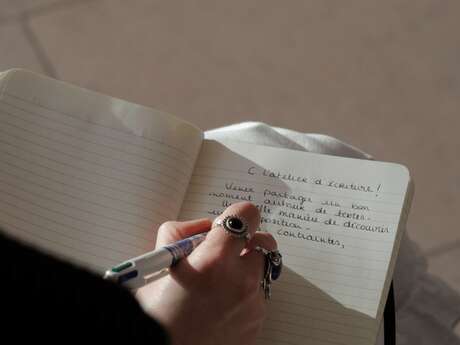 C l'atelier d'écriture!
Venez partager un bon
moment autour de textes.
manière de découvrir
position.
contraintes,